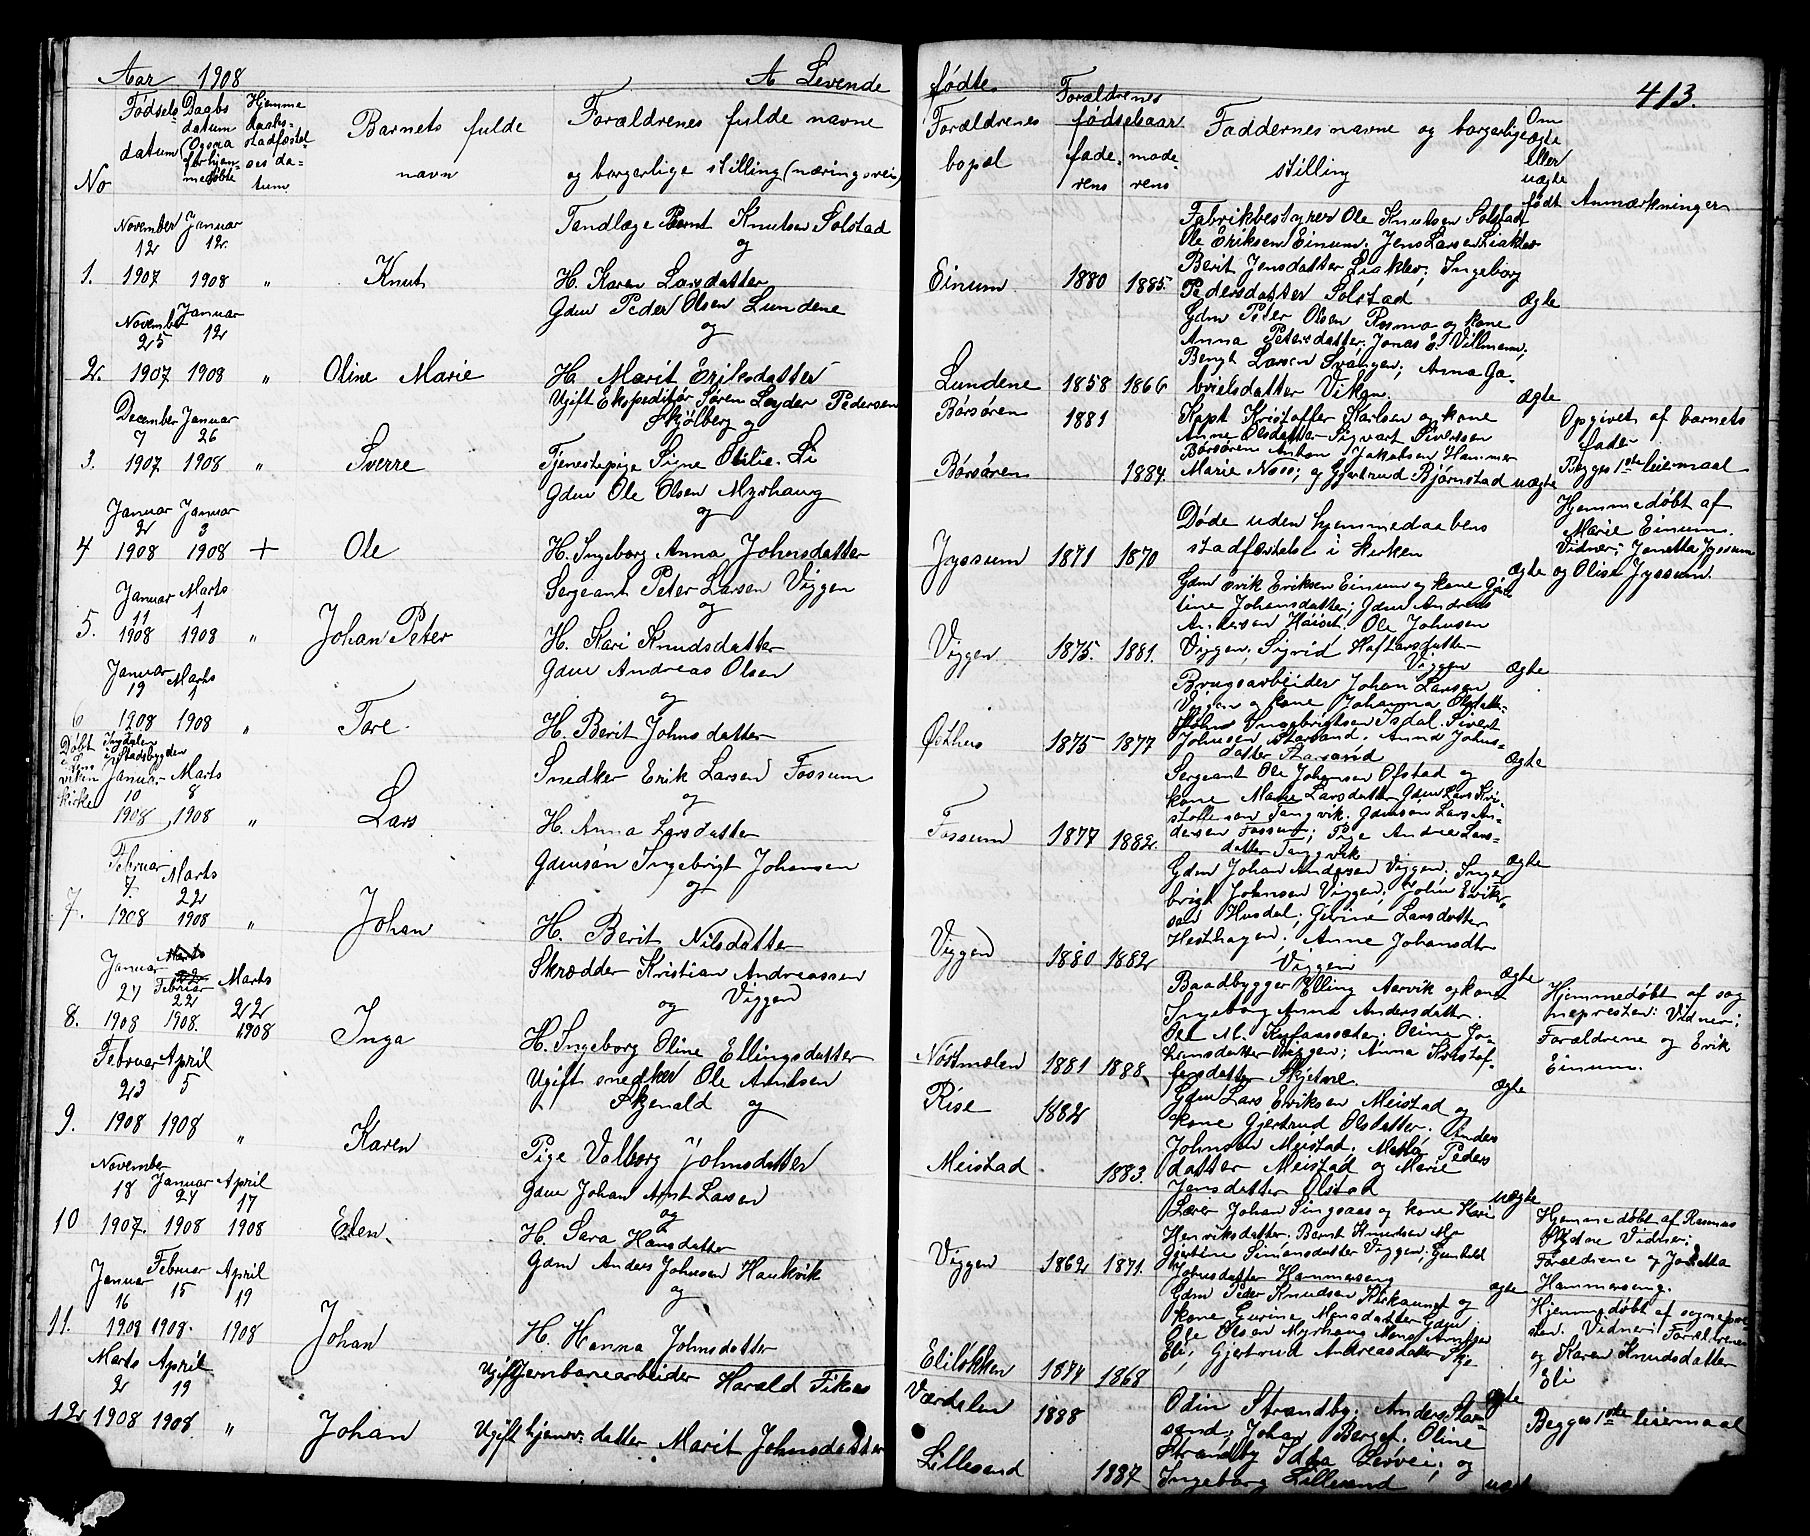 Aar 1908 A Levende
No
Fødsels datum
Daabs datum (Ogsaa for hjemmedøbte
Hjemme daabs- stadfæstel ses datum
Barnets fulde navn
Forældrenes fulde navne og borgerlige stilling (næringsvei)
November 12 Januar 12
Tandlæge Bernt Knutsen Solstad
og
1. 1907 1908 " Knut H. Karen Larsdatter
Gdm Peder Olsen Lundene
November 25 Januar 12
og
2. 1907 1908 " Oline Marie H. Marit Eriksdatter
December 7 Januar 26
Ugift Ekspeditør Søren Lyder Pedersen
Skjølberg og
3. 1907 1908 " Sverre Tjenestepige Signe Otilie Li
Gdm Ole Olsen Myrhaug
Januar 2 Januar 3
og
4 1908 1908 + Ole H. Ingeborg Anna Johnsdatter
Januar 11 Marts 1
Sergeant Peter Larsen Viggen
og
5. 1908 1908 " Johan Peter H. Kari Knudsdatter
Januar 19 Marts 1
Gdm Andreas Olsen
og
6 1908 1908 " Tore H. Berit Johnsdatter
Døbt i
viken
kirke
Stadsbygden
Januar 10 Marts 8
Snedker Erik Larsen Fossum
og
1908 1908 " Lars H. Anna Larsdatter
Februar 7. Marts 22
Gdmsøn Ingebrigt Johansen
og
7. 1908 1908 " Johan H. Berit Nilsdatter
Januar 27 Februar 22 Marts 22
Skrædder Kristian Andreassen
og Viggen
8. 1908 1908. 1908 Inga H. Ingeborg Oline Ellingsdatter
Februar 23 April 5
Ugift snedker Ole Arntsen
Skjenald og
9. 1908 1908 " Karen Pige Valborg Johnsdatter
November 18 Januar 27 April 17
Gdm Johan Arnt Larsen
og
10 1907. 1908 1908 Elen H. Sara Hansdatter
Januar 16 Februar 15 April 19
Gdm Anders Johnsen Haukvik
og
11. 1908 1908. 1908 Johan H. Hanna Johnsdatter
Marts 2 April 19
Ugift Jernbanearbeider Harald
12 1908 1908. " Johan Ugift hjemv: datter Marit Johnsdatter
fødte. 413.
Forældrenes bopæl
Forældrenes fødselsaar
faderens
moderens
Faddernes navne og borgerlige stilling
Om ægte eller uægte født
Anmærkninger
Fabrikbestyrer Ole Knutsen Solstad
Ole Eriksen Einum. Jens Larsen Liaklev
Berit Jensdatter Liaklev; Ingeborg
Einum 1880 1885. Pedersdatter Solstad Ægte
Gdm Peter Olsen Rosmo og kone
Anna Petersdatter; Jonas E. Villmann;
Bengt Larsen Svangen; Anna Ga-
Lundene 1858 1866 brielsdatter Viken. Ægte
Børsøren 1881 Kapt Kristoffer Karlsen og kone
Anne Olsdatter Sigvart Sivertsen
Børsøren Anton Jakobsen Hammer
Børsøren 1884. Marie Næss; og Gjertrud Bjørnstad uægte
Opgivet af barnets
fader
Begges 1ste leiermaal
Døde uden hjemmedaabens
stadfæstelse i kirken
Jyssum 1871 1870 Ægte
Hjemmedøbt af
Marie Einum.
Vidner; Janetta Jyssum
og Olise Jyssum.
Gdm Erik Eriksen Einum og kone
line Johansdatter; Gdm Andreas
Andersen Ole Johnsen
Viggen 1875. 1881. Viggen; Sigrid Larsdatter
Viggen Ægte
Brugsarbeider Johan Larsen
Viggen og kone Johanna Olsdatter
Ingebrigtsen Sivert
1875 1877 Johnsen Starsand. Anne Johns-
datter Starsand Ægte
Sergeant Ole Johansen Ofstad og
kone Marie Larsdatter Gdm Lars Kri-
stoffersen Tangvik. Gdmsøn Lars An-
Fossum 1877 1882. dersen Fossum; Pige Andrea Lars-
datter Tangvik Ægte
Gdm Johan Andersen Viggen; Inge-
brigt Johnsen Viggen; John Erik-
sen Husdal; Gurine Larsdatter
Hesthagen; Anne Johansdtr
Viggen 1880 1882 Viggen Ægte
Baadbygger Elling Aarvik og kone
Ingeborg Anna Andersdatter.
Ole M. Oline Jo-
hansdatter Viggen; Anna Kristof-
Nøstmælen 1881 1888 fersdatter Skjetne. Ægte
Hjemmedøbt af sog
nepresten: Vidner;
Forældrene og Erik
Einum.
Rise 1882 Gdm Lars Eriksen Meistad og
kone Gjertrud Olsdatter; Anders
Johnsen Meistad. Metha Peders
Meistad 1883. datter Meistad og Marie
Jensdatter Olstad uægte
Lærer Johan Singsaas og kone Kari
Henriksdatter. Bernt Knutsen Mo
Gjertine Simensdatter Viggen; Gunhild
Viggen 1862 1871. Johnsdatter Hammerseng ægte
Hjemmedøbt af Rasmus
Skjetne Vidner;
Forældrene og Jonetta
Hammerseng.
Gdm Peder Knudsen Kirkaunet og
kone Gurine Monsdatter Gdm
Ole Olsen Myrhaug Mons Arntsen
Eliløkken 1874 1868 Eli; Gjertrud Andreasdatter ægte
Hjemmedøbt af sognepre
sten. Vidner: Forældrene
og Karen Knudsdatter
Eli
Værdalen 1888 Odin Strandby. Anders Star-
sand; Johan Berget. Oline
Strandby
Lillesand 1887 Ingeborg Lillesand
Begges 1ste leiermaal